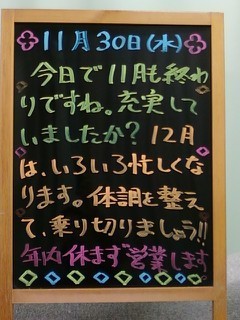 11月30日(水)
今日で11月も終わ
りですね。充実して
いましたか? 12月
は、いろいろ忙しくな
ります。体調を整え
て、乗り切りましょう!!
年内休まず営業します